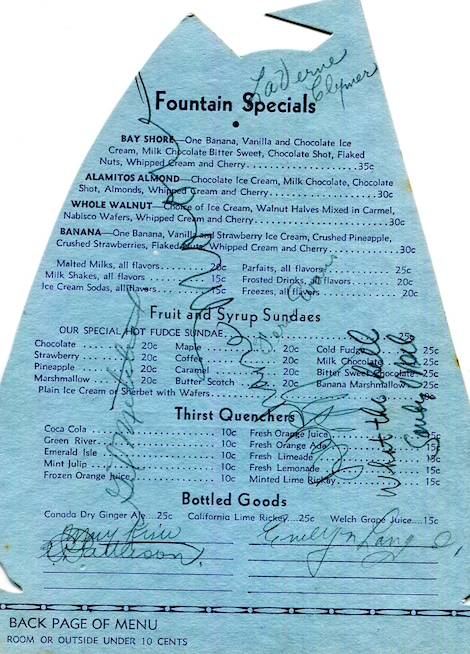 LaVerne
Clymer
Fountain Specials
BAY SHORE—One Banana, Vanilla and Chocolate Ice
Cream, Milk Chocolate Bitter Sweet, Chocolate Shot, Flaked
Nuts, Whipped Cream and Cherry 35c
ALAMITOS ALMOND—Chocolate Ice Cream, Milk Chocolate, Chocolate
Shot, Almonds, Whipped Cream and Cherry 30c
WHOLE WALNUT—Choice of Ice Cream, Walnut Halves Mixed in Carmel,
Nabisco Wafers, Whipped Cream and Cherry 30c
BANANA—One Banana, Vanilla and Strawberry Ice Cream, Crushed Pineapple,
Crushed Strawberries, Flaked Nuts, Whipped Cream and Cherry 30c
Malted Milks, all flavors 20c Parfaits, all flavors 25c
Milk Shakes, all flavors 15c Frosted Drinks, all flavors 20c
Ice Cream Sodas, all flavors 15c Freezes, all flavors 20c
Fruit and Syrup Sundaes
OUR SPECIAL HOT FUDGE SUNDAE 25c
Chocolate 20c Maple 20c Cold Fudge 25c
Strawberry 20c Coffee 20c Milk Chocolate 25c
Pineapple 20c Caramel 20c Bitter Sweet Chocolate 25c
Marshmallow 20c Butter Scotch 20c Banana Marshmallow 25c
Plain Ice Cream or Sherbet with Wafers
What the hell
Thirst Quenchers
Coca Cola 10c Fresh Orange Juice 15c
Green River 10c Fresh Orange Ade 15c
Emerald Isle 10c Fresh Limeade 15c
Mint Julip 10c Fresh Lemonade 15c
Frozen Orange Juice 10c Minted Lime Rickey 15c
Bottled Goods
Canada Dry Ginger Ale....25c California Lime Rickey....25c Welch Grape Juice....15c
Patterson
BACK PAGE OF MENU
ROOM OR OUTSIDE UNDER 10 CENTS